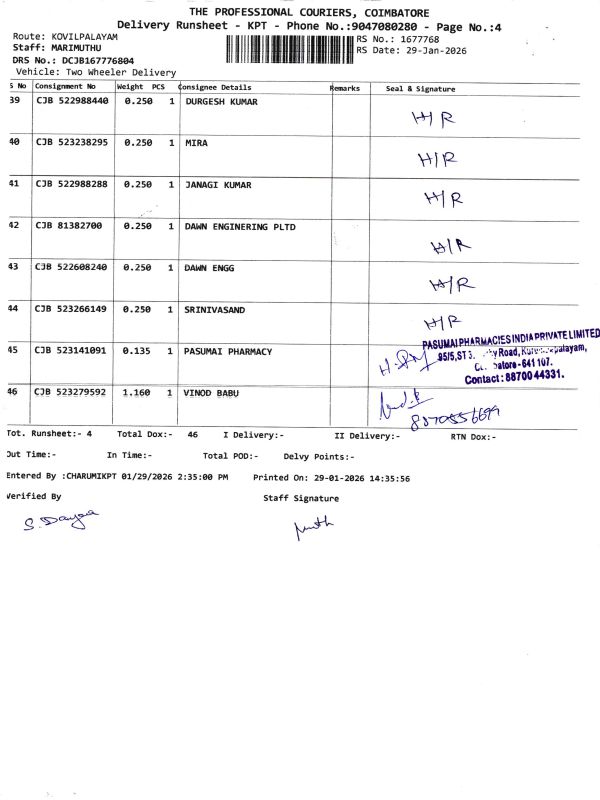 THE PROFESSIONAL COURIERS, COIMBATORE
Delivery Runsheet - KPT - Phone No.:9047080280 - Page No.:4
Route: KOVILPALAYAM
RS No.: 1677768
Staff: MARIMUTHU
RS Date: 29-Jan-2026
DRS No.: DCJB167776804
Vehicle: Two Wheeler Delivery
S No Consignment No Weight PCS Consignee Details Remarks Seal & Signature
39 CJB 522988440 0.250 1 DURGESH KUMAR H/R
40 CJB 523238295 0.250 1 MIRA H/R
41 CJB 522988288 0.250 1 JANAGI KUMAR H/R
42 CJB 81382700 0.250 1 DAWN ENGINERING PLTD H/R
43 CJB 522608240 0.250 1 DAWN ENGG H/R
44 CJB 523266149 0.250 1 SRINIVASAND H/R
PASUMAI PHARMACIES INDIA PRIVATE LIMITED
45 CJB 523141091 0.135 1 PASUMAI PHARMACY
95/5, Road,
641 107.
Contact: 8870044331.
46 CJB 523279592 1.160 1 VINOD BABU
Tot. Runsheet:- 4 Total Dox:- 46 I Delivery:- II Delivery:- RTN Dox:-
Out Time:- In Time:- Total POD:- Delvy Points:-
Entered By :CHARUMIKPT 01/29/2026 2:35:00 PM Printed On: 29-01-2026 14:35:56
Verified By Staff Signature
S. Dayaa